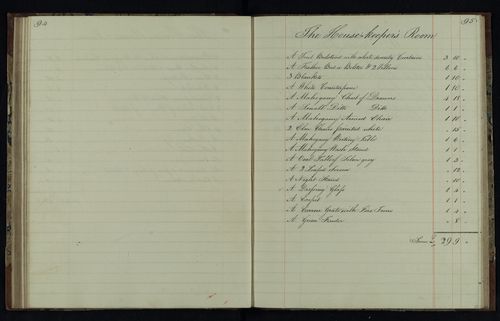 94
95
The Housekeeper's Room
A Tent Bedstead with white dimity Curtains 3 10 -
A Feather Bed a Bolster & 2 Pillows 6 6 -
3 Blankets 1 10 -
A White Counterpane 1 10 -
A Mahogany Chest of Drawers 4 18 -
A Small Ditto Ditto 1 1 -
A Mahogany Armed Chair 1 10 -
2 Elm Chairs painted white - 15 -
A Mahogany Writing Table 1 6 -
A Mahogany Wash Stand 1 1 -
A Oval Table 1 3 -
A 2 - 12 -
A Night - 10 -
A Dressing Glass 1 4 -
A Carpet 1 1 -
A Grate with Fire Irons 1 4 -
A Green Fender - 8 -
£ 29 9 -